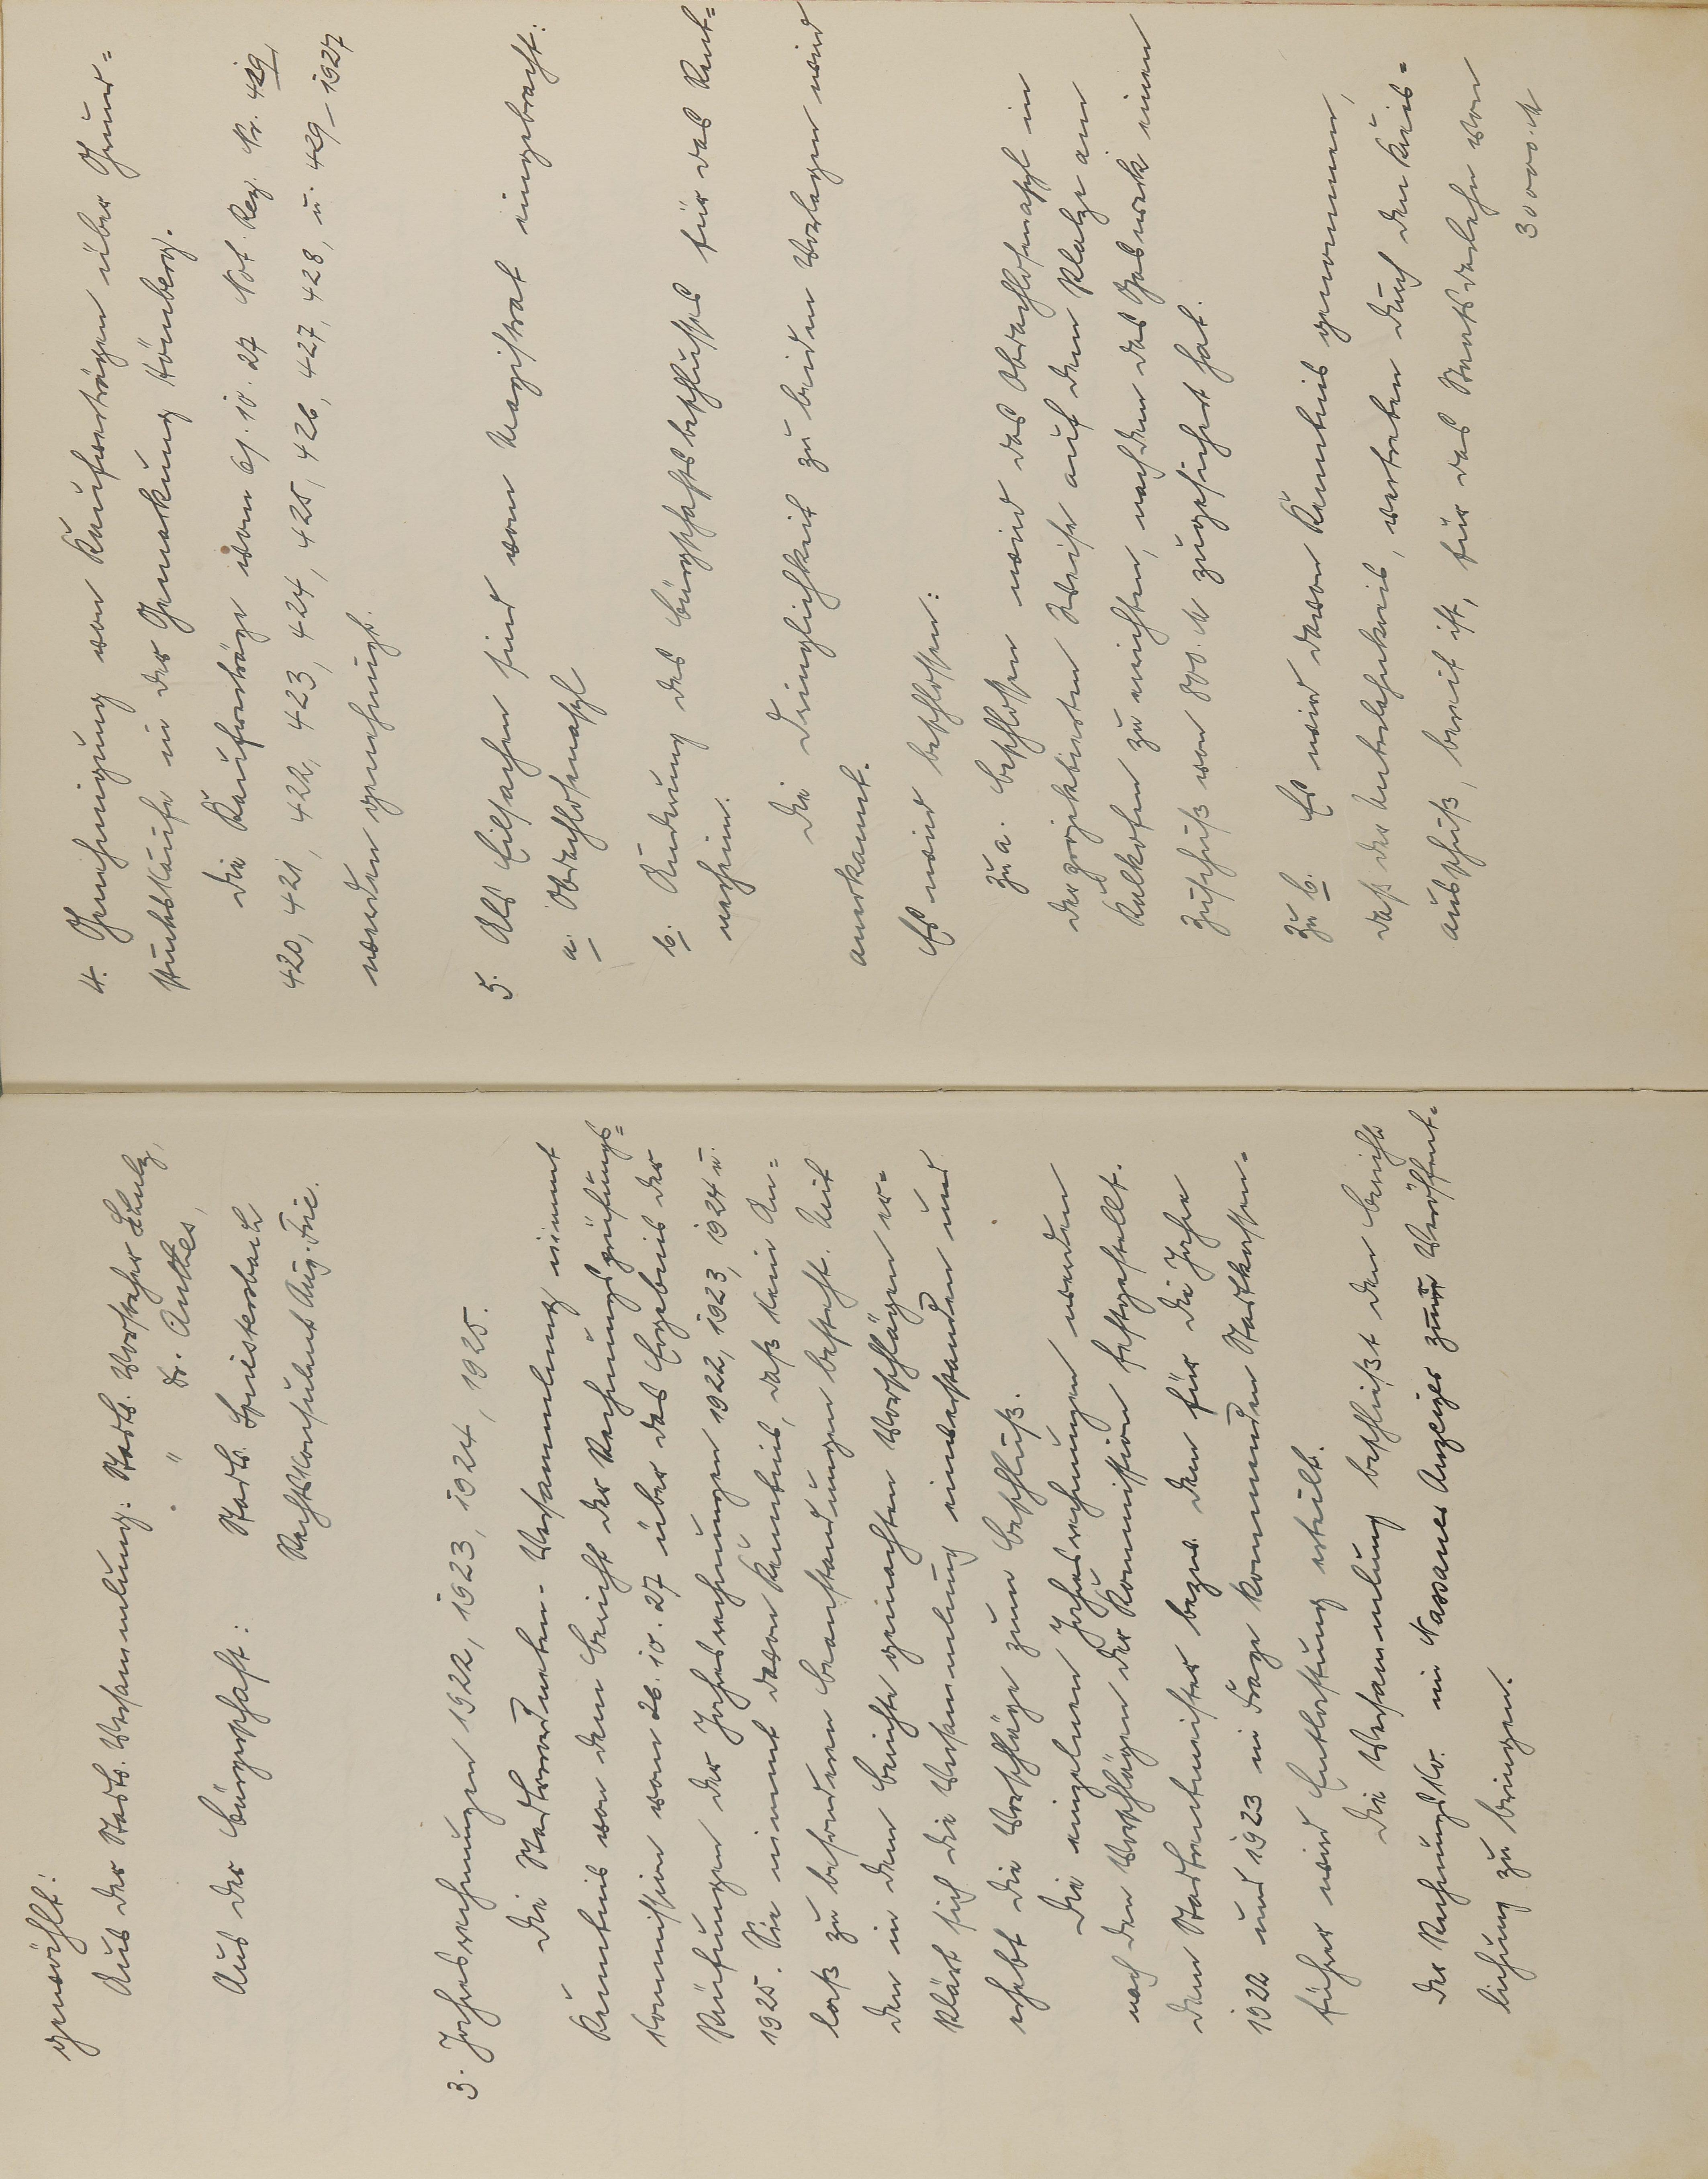 gewählt:
Aus der Stadtv. Versammlung: Stadtv. Vorsteher Schulz,
" Dr. Anthes,
Aus der Bürgerschaft: Stadtv. Heisterbach
Rechtskonsulent Aug. Frie.
3. Jahresrechnungen 1922, 1923, 1924, 1925.
Die Stadtverordneten-Versammlung nimmt
Kenntnis von dem Bericht der Rechnungsprüfungs-
kommission vom 26.10.27 über das Ergebnis der
Prüfungen der Jahresrechnungen 1922, 1923, 1924 u.
1925. Sie nimmt davon Kenntnis, daß kein An-
laß zu besonderen Beanstandungen besteht. Mit
den in dem Bericht gemachten Vorschlägen er-
klärt sich die Versammlung einverstanden und
erhebt die Vorschläge zum Beschluß.
Die einzelnen Jahresrechnungen werden
nach den Vorschlägen der Kommission festgestellt.
Dem Stadtrentmeister bezw. dem für die Jahre
1922 und 1923 in Frage kommenden Stadtkassen-
führer wird Entlastung erteilt.
Die Versammlung beschließt den Bericht
der Rechnungsk. im Nassauer Anzeiger zur Veröffent-
lichung zu bringen.
4. Genehmigung von Kaufverträgen über Grund-
stückskäufe in der Gemarkung Hömberg.
Die Kaufverträge vom 6.10.27 Not. Reg. Nr. 419,
420, 421, 422, 423, 424, 425, 426, 427, 428, u. 429 – 1927
werden genehmigt.
5. Als Eilsachen sind vom Magistrat eingebracht:
a. Obdachlosenasyl
b. Änderung des Bürgschaftsbeschlusses für das Rent-
nerheim.
Die Dringlichkeit zu beiden Vorlagen wird
anerkannt.
Es wird beschlossen:
Zu a. Beschlossen wird das Obdachlosenasyl in
der projektierten Weise auf dem Platze am
Kalkofen zu errichten, nachdem das Gaswerk einen
Zuschuß von 800.M zugesichert hat.
Zu b. Es wird davon Kenntnis genommen,
daß der Unterlahnkreis, vertreten durch den Kreis-
ausschuß, bereit ist, für das Staatsdarlehn von
30000.M